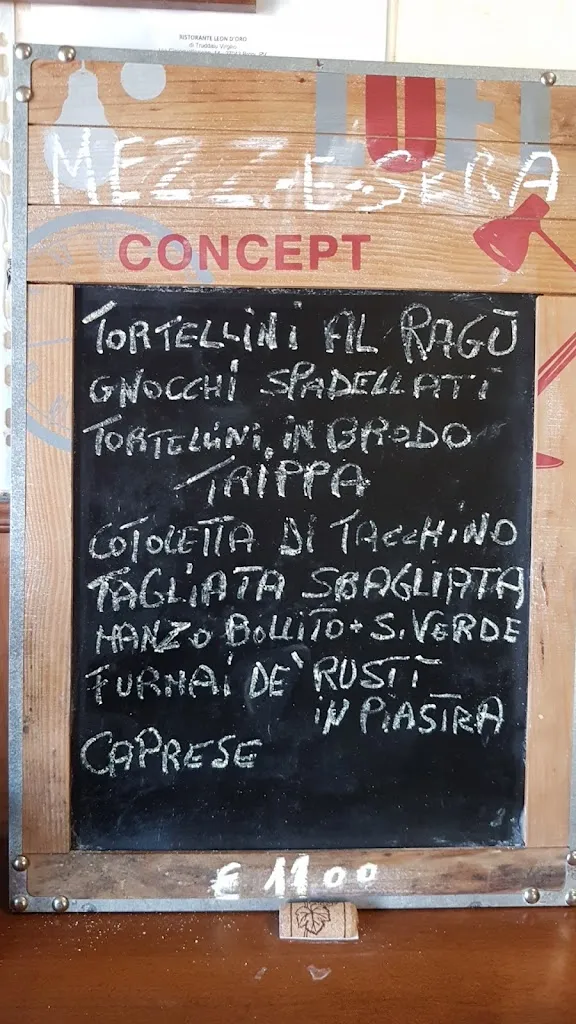 RISTORANTE LEON D'ORO
di Truddaiu Virgilio
MEZZ-E-SERA
CONCEPT
TORTELLINI AL RAGÙ
GNOCCHI SPADELLATI
TORTELLINI IN BRODO
TRIPPA
COTOLETTA DI TACCHINO
TAGLIATA SBAGLIATA
MANZO BOLLITO + S. VERDE
FURMAI DE' RUSTÌ
IN PIASTRA
CAPRESE
€ 11.00